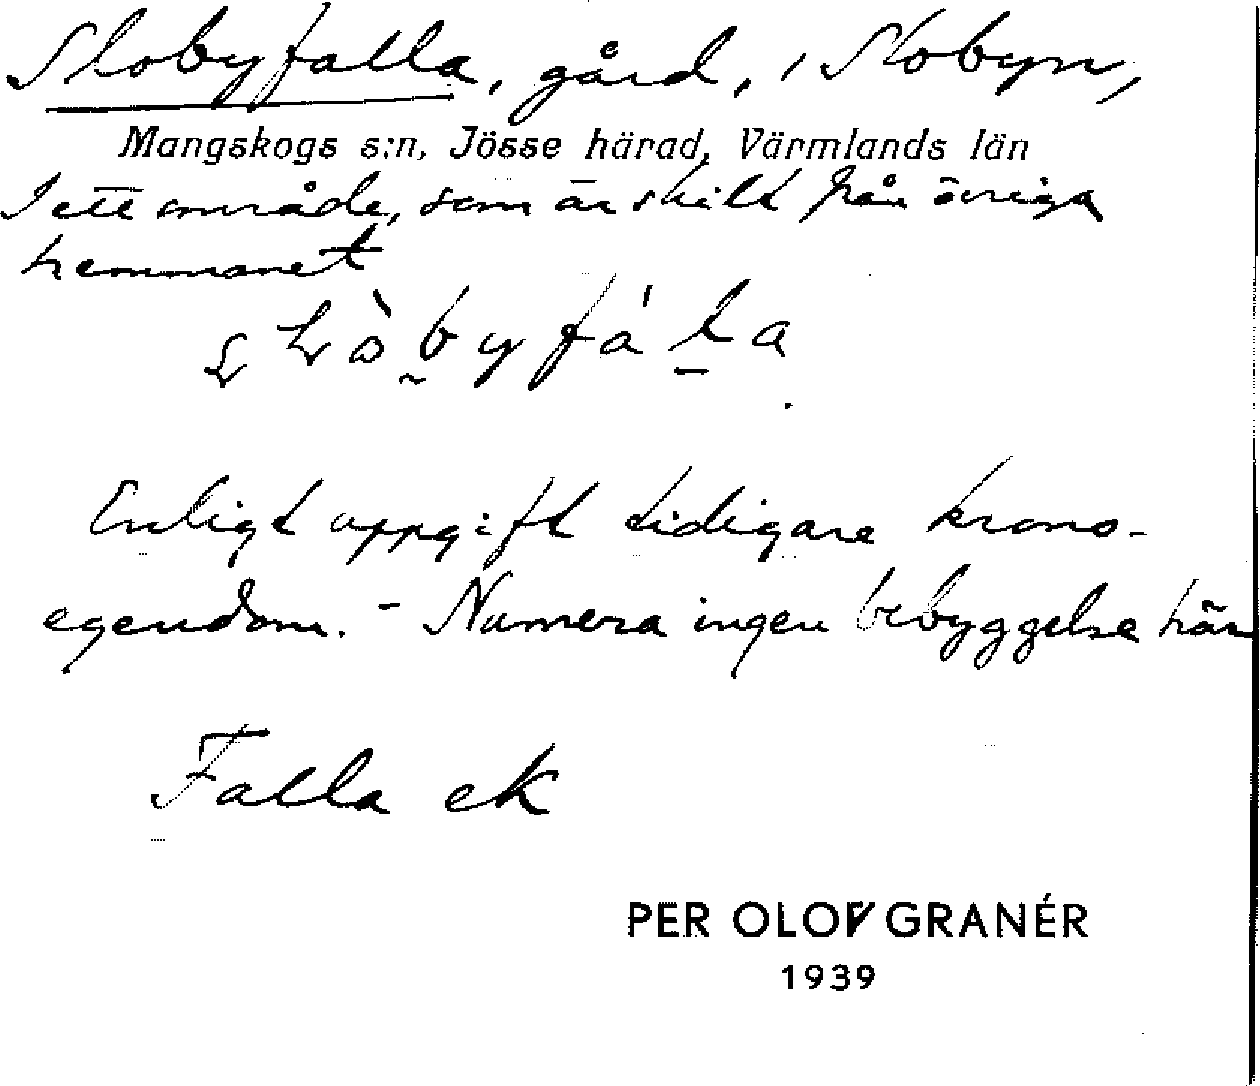 Slobyfalla, gård, i Slobyn,
Mangskogs s:n, Jösse härad, Värmlands län
I ett område, som är skilt från övriga
hemmanet
Enligt uppgift tidigare krono-
egendom. - Numera ingen bebyggelse här
Falla ek
PER OLOV GRANÉR
1939